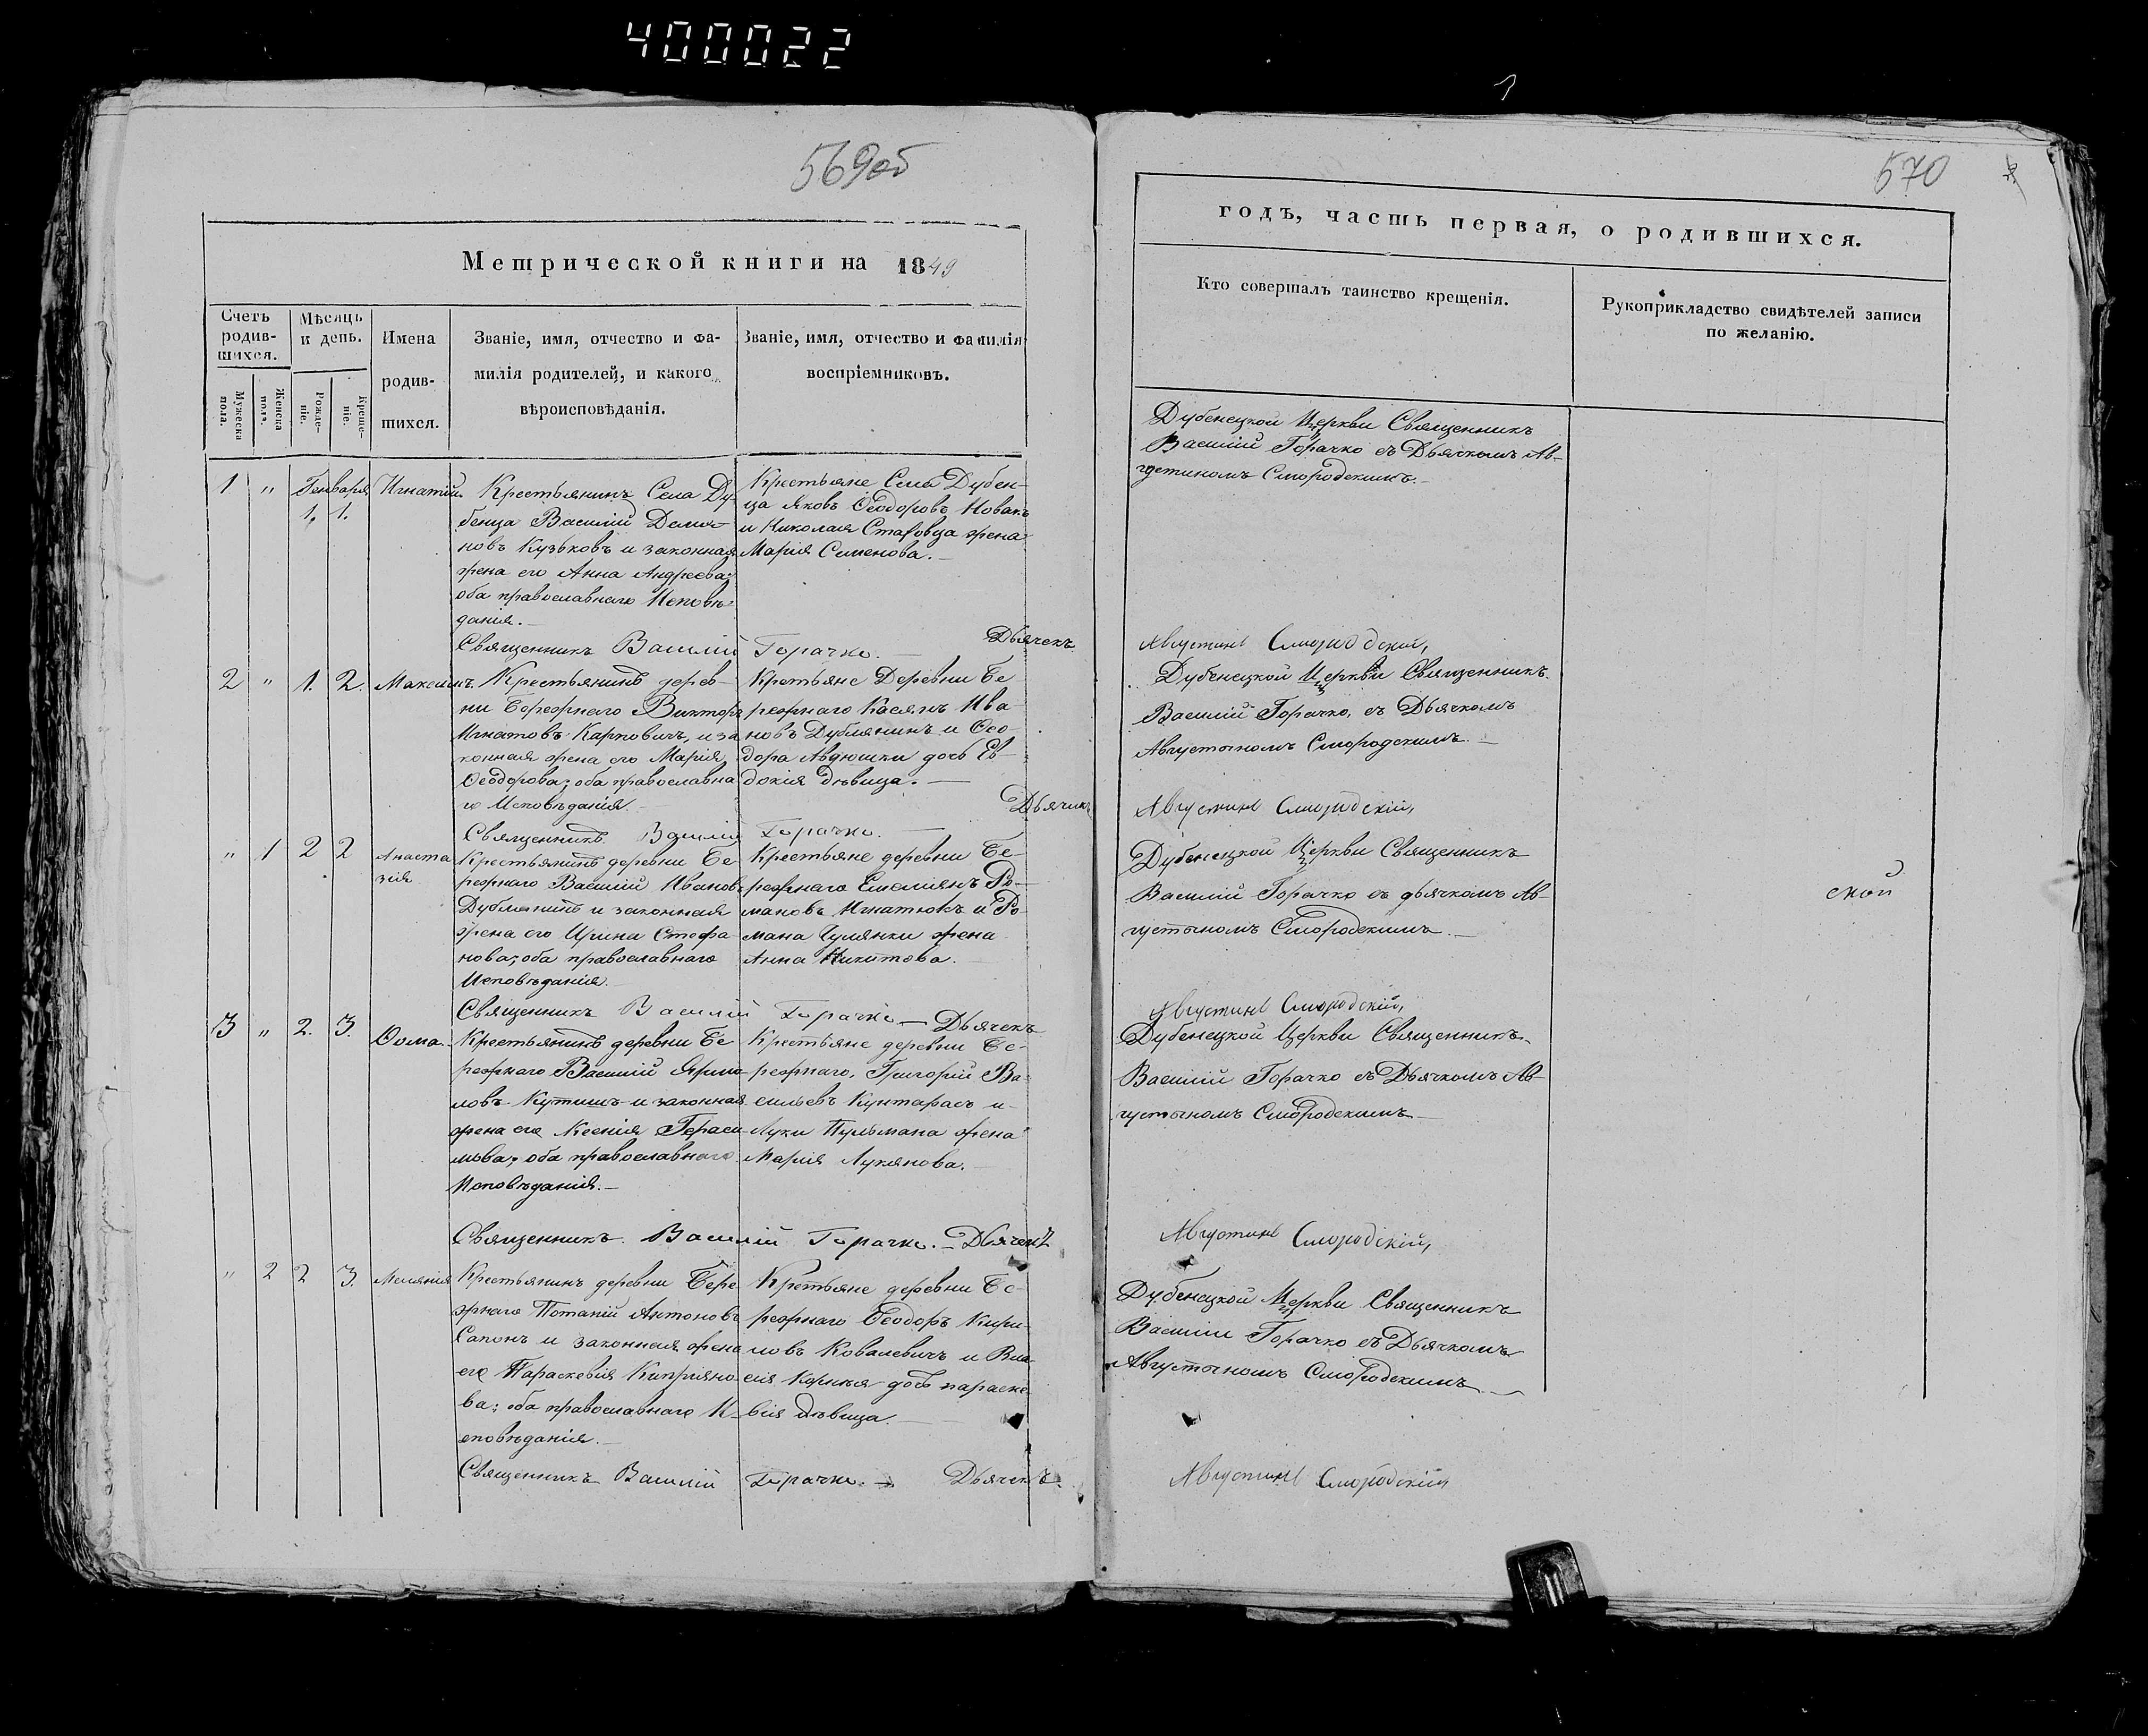 400022
569об
Метрической книги на 1849
Счетъ родив-шихся.
Мужеска пола.
Женска пола.
Мѣсяцъ и день.
Рожде-ніе.
Креще-ніе.
Имена
родив-
шихся.
Званіе, имя, отчество и фа-
милія родителей, и какого
вѣроисповѣданія.
Званіе, имя, отчество и фамилія
воспріемниковъ.
1 " Генваря 1. 1. Игнатій.
Крестьянинъ Села Ду-
бенца Василій Демья-
новъ Кузьковъ и законная
жена его Анна Андреева;
оба православнаго Исповѣ-
данія.—
Крестьяне Села Дубен-
ца Яковъ Ѳеодоровъ Новакъ
и Николая Ставовца жена
Марія Семенова.—
Священникъ Василій Горачко.— Дьячекъ
2 " 1. 2. Максимъ.
Крестьянинъ дерев-
ни Бережнаго Викторъ
Игнатовъ Карповичъ, и за
конная жена его Марія
Ѳеодорова; оба православна
го Исповѣданія.—
Кретьяне Деревни Бе
режнаго Касянъ Ива-
новъ Дублянинъ и Ѳео-
дора Авдюшки дочь Ев
докія дѣвица.—
Дьячекъ
Священникъ Василій Горачко.—
" 1 2 2 Анаста
зія
Крестьянинъ деревни Бе
режнаго Василій Ивановъ
Дублянинъ и законная
жена его Ирина Стефа
нова; оба православнаго
Исповѣданія.
Крестьяне деревни Бе-
режнаго Емеліянъ Ро-
мановъ Игнатюкъ и Ро-
мана Гулянки жена
Анна Никитова.
Священникъ Василій Горачко— Дьячекъ
3 " 2. 3. Ѳома.
Крестьянинъ деревни Бе
режнаго Василій Ярмо-
ловъ и законная
жена его Ксенія Гераси
мова; оба православнаго
Исповѣданія.—
Крестьяне деревни Бе-
режнаго, Григорій Ва-
сильевъ Кунтарасъ и
Луки Пульмана жена
Марія Лукянова.
Священникъ Василій Горачко.— Дьячекъ
" 2 2 3. Меланія
Крестьянинъ деревни Бере
жнаго Потапій Антоновъ
Сапонъ и законная жена
его Параскевія Кипріяно
ва; оба православнаго И-
сповѣданія.—
Кретьяне деревни Бе-
режнаго Ѳеодоръ Кири-
ловъ Ковалевичъ и Вла-
сія Корнѣя дочь параске-
вія дѣвица.—
Священникъ Василій Горачко.— Дьячекъ.
570
годъ, часть первая, о родившихся.
Кто совершалъ таинство крещенія.
Рукоприкладство свидѣтелей записи
по желанію.
Дубенецкой Церкви Священникъ
Василій Горачко съ Дьячкомъ Ав-
густиномъ Смородскимъ.—
Августинъ Смородскій,
Дубенецкой Церкви Священникъ
Василій Горачко, съ Дьячкомъ
Августыномъ Смородскимъ.—
Августинъ Смородскій,
Дубенецкой Церкви Священникъ
Василій Горачко съ дьячкомъ Ав-
густыномъ Смородскимъ.—
ской
Августинъ Смородскій,
Дубенецкой Церкви Священникъ
Василій Горачко съ Дьячкомъ Ав-
густыномъ Смородскимъ—
Августинъ Смородскій,
Дубенецкой Церкви Священникъ
Василій Горачко съ Дьячкомъ
Августыномъ Смородскимъ.—
Августинъ Смородскій